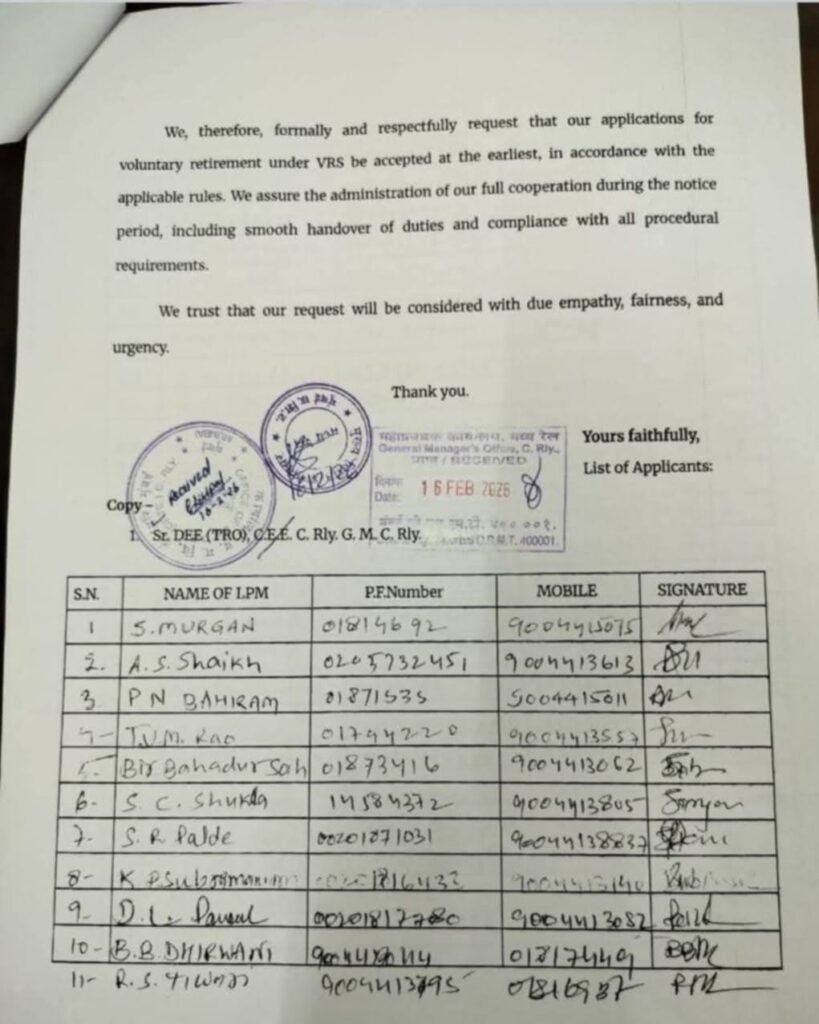 We, therefore, formally and respectfully request that our applications for
voluntary retirement under VRS be accepted at the earliest, in accordance with the
applicable rules. We assure the administration of our full cooperation during the notice
period, including smooth handover of duties and compliance with all procedural
requirements.
We trust that our request will be considered with due empathy, fairness, and
urgency.
Thank you.
महाप्रबंधक कार्यालय, मध्य रेल
General Manager's Office, C. Rly.,
प्राप्त / RECEIVED
दिनांक
Date: 16 FEB 2026
C.S.M.T. 400001.
Received
Yours faithfully,
List of Applicants:
Copy -
1. Sr. DEE (TRO), C.E.E. C. Rly. G. M. C. Rly.
S.N. NAME OF LPM P.F.Number MOBILE SIGNATURE
1 S. MURGAN 01814692 9004415075
2. A.S. Shaikh 0205732451 9004413613
3 P N BAHIRAM 01871535 9004415011
4- T.V.M. Rao 01794220 9004413557
5. Bir Bahadur Sah 01873416 9004413062
6- S. C. Shukla 14584372 9004413805
7- S. R Palde 00201871031
8- K P Subramanium
9- D. L. 9004413082
10- B.B. DHIRWANI 01817449
11- R. S.